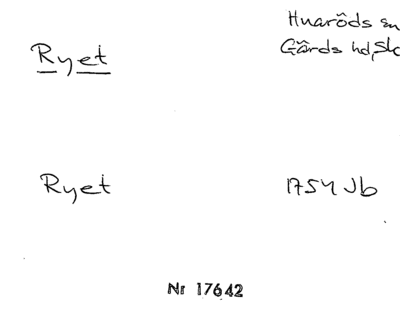 Huaröds sn
Ryet
Gärds hd, Sk
Ryet
1754 Jb
Nr 17642